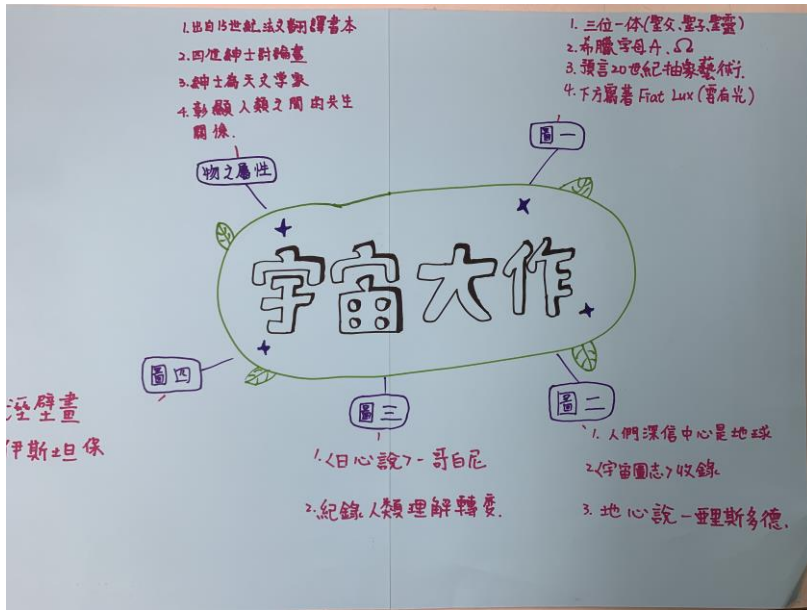 1.出自15世紀法文翻譯書本
2.四位紳士討論畫
3.紳士為天文学家
4.彰顯人類之間的共生
關係.
物之屬性
1. 三位一体(聖父、聖子、聖靈)
2.希臘字母A、Ω
3.預言20世紀抽象藝術.
4.下方寫著 Fiat Lux (要有光)
圖一
宇宙大作
圖四
溼壁畫
伊斯坦保
圖三
1.〈日心說〉-哥白尼
2.紀錄人類理解轉變.
圖二
1. 人們深信中心是地球
2〈宇宙圖志〉收錄
3. 地心說-亞里斯多德.